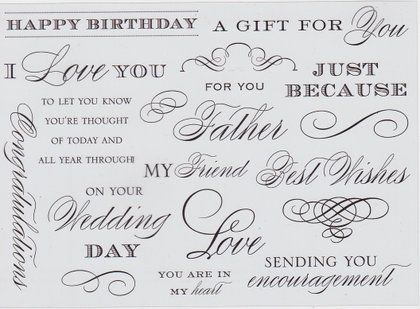 HAPPY BIRTHDAY
A GIFT FOR You
I Love YOU
FOR YOU
JUST
BECAUSE
TO LET YOU KNOW
YOU'RE THOUGHT
OF TODAY AND
ALL YEAR THROUGH!
Congratulations
Father
MY Friend
Best Wishes
ON YOUR
Wedding
DAY
Love
YOU ARE IN
MY heart
SENDING YOU
encouragement